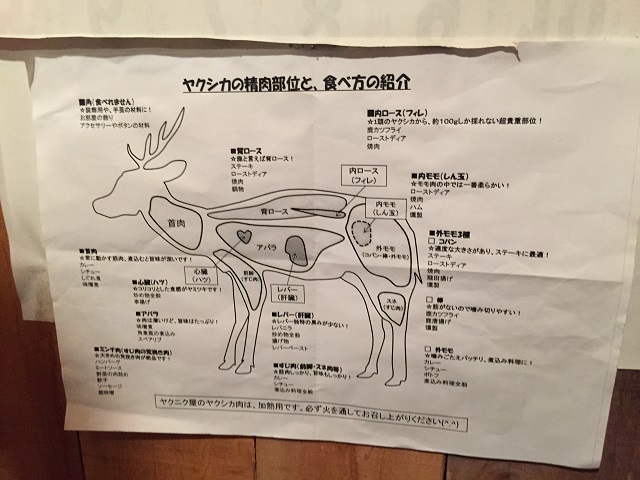 ヤクシカの精肉部位と、食べ方の紹介
■角(食べれません)
★装飾用や、手芸の材料に!
お部屋の飾り
アクセサリーやボタンの材料
■内ロース(フィレ)
★1頭のヤクシカから、約100gしか採れない超貴重部位!
鹿カツフライ
ローストディア
焼肉
■背ロース
★鹿と言えば背ロース!
ステーキ
ローストディア
焼肉
鍋物
■内モモ(しん玉)
★モモ肉の中では一番柔らかい!
ローストディア
焼肉
ハム
燻製
■外モモ3種
□ コバン
★適度な大きさがあり、ステーキに最適!
ステーキ
ローストディア
焼肉
竜田揚げ
燻製
□ 棒
★筋がないので噛み切りやすい!
鹿カツフライ
鹿唐揚げ
燻製
□ 外モモ
★噛みごたえバッチリ、煮込み料理に!
カレー
シチュー
ポトフ
煮込み料理全般
内ロース
(フィレ)
内モモ
(しん玉)
背ロース
首肉
アバラ
外モモ
(コバン・棒・外モモ)
心臓
(ハツ)
前脚
(すじ肉)
レバー
(肝臓)
スネ
(すじ肉)
■首肉
★常に動かす筋肉、煮込むと旨味が深いです!
カレー
シチュー
しぐれ煮
味噌煮
■心臓(ハツ)
★コリコリとした食感がヤミツキです!
炒め物全般
串揚げ
■アバラ
★肉は薄いけど、旨味はたっぷり!
味噌煮
角煮風の煮込み
スペアリブ
■レバー(肝臓)
★レバー独特の臭みが少ない!
レバニラ
炒め物全般
揚げ物
レバーペースト
■ミンチ肉(すじ肉の荒挽き肉)
★大きめの荒挽き肉が絶品です!
ハンバーグ
ミートソース
野菜の肉詰め
餃子
ソーセージ
■すじ肉(前脚・スネ肉等)
★筋肉しっかり、旨味もしっかり!
カレー
シチュー
煮込み料理全般
ヤクニク屋のヤクシカ肉は、加熱用です。必ず火を通してお召し上がりください(^.^)